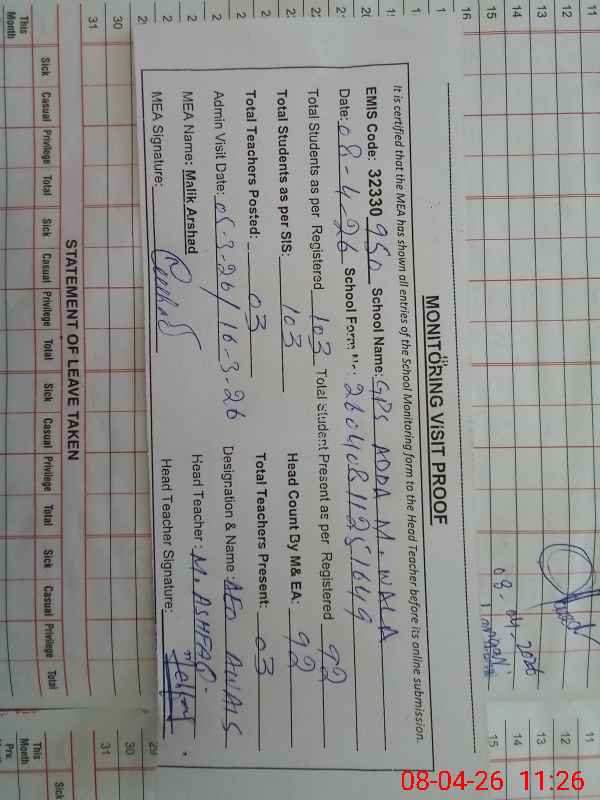 MONITORING VISIT PROOF
It is certified that the MEA has shown all entries of the School Monitoring form to the Head Teacher before its online submission.
EMIS Code: 32330 950 School Name: GPS ADDA M. WALA
Date: 08-4-26 School Form No: 260408112251649
Total Students as per Registered 103 Total student Present as per Registered 92
Total Students as per SIS: 103 Head Count By M& EA: 92
Total Teachers Posted: 03 Total Teachers Present: 03
Admin Visit Date: 05-3-26/16-3-26 Designation & Name: AEO AWAIS
MEA Name: Malik Arshad Head Teacher: M. ASHFAQ
MEA Signature: Head Teacher Signature:
STATEMENT OF LEAVE TAKEN
Sick Casual Privilege Total Sick Casual Privilege Total Sick Casual Privilege Total Sick Casual Privilege Total
This Month
This Month
Prv.
Sick
11
12
13
14
15
16
30
31
11
12
13
14
15
29
30
31
08-04-2026
08-04-26 11:26